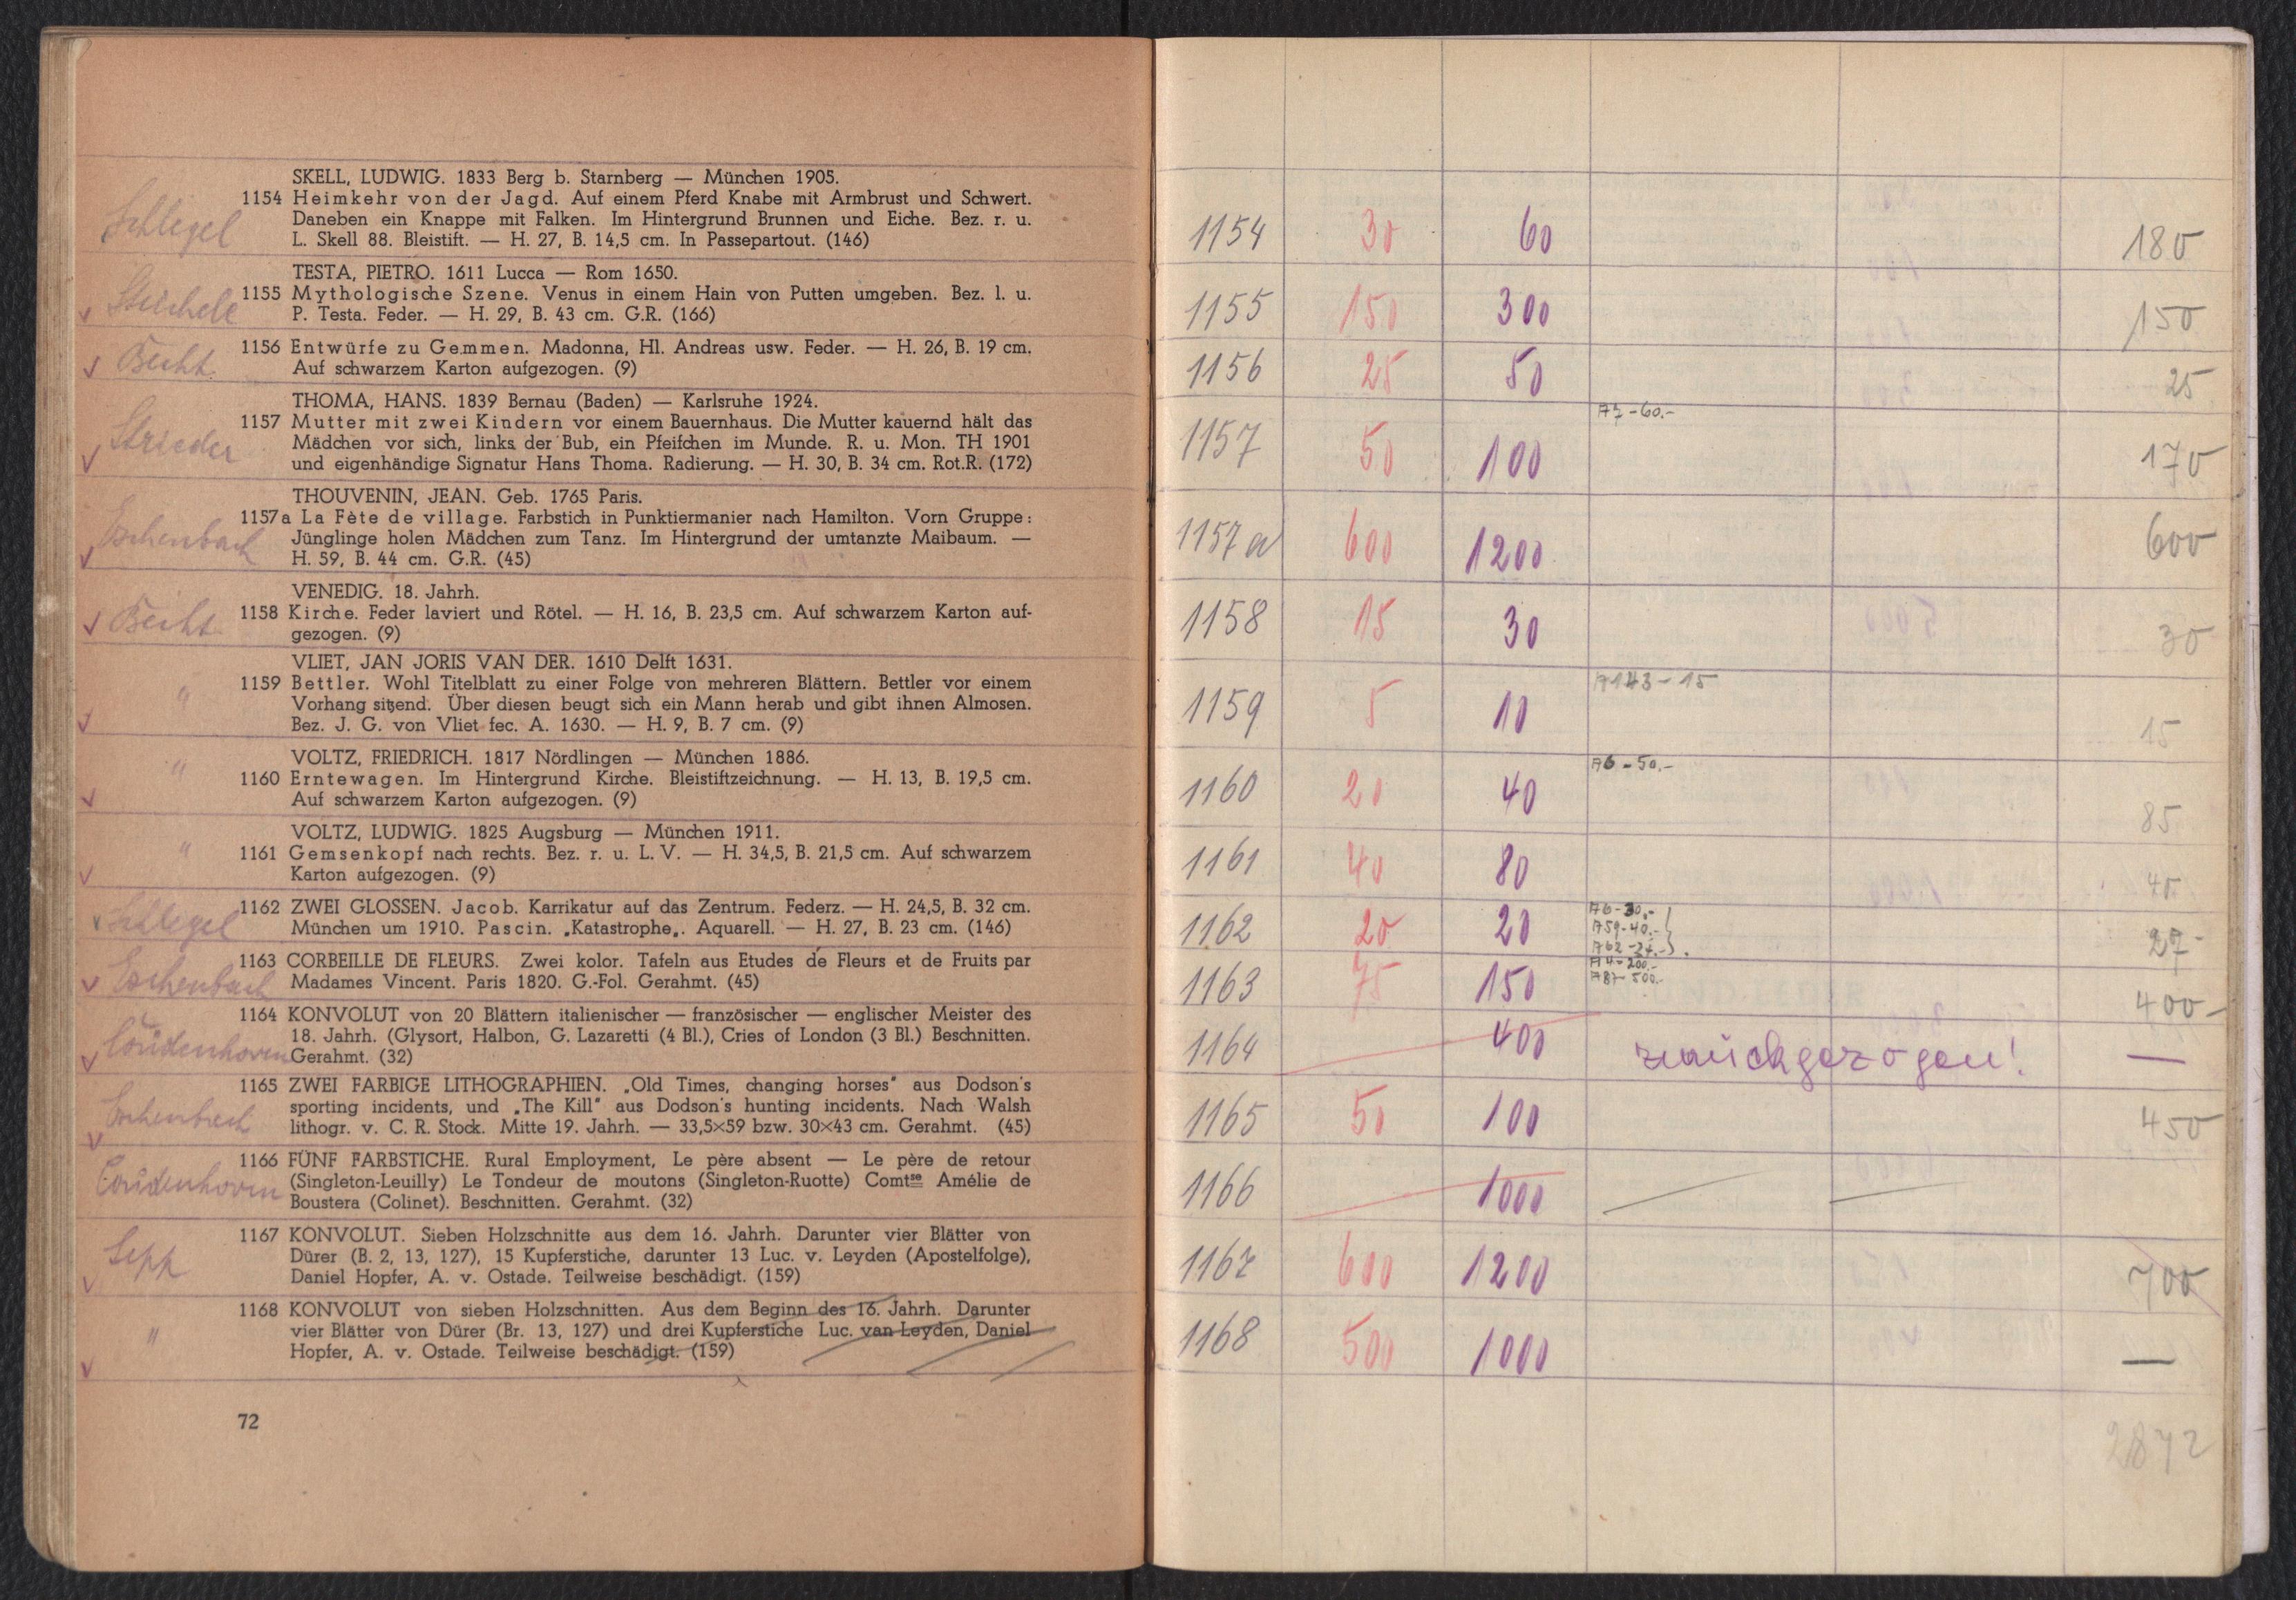 SKELL, LUDWIG. 1833 Berg b. Starnberg — München 1905.
Schlegel
1154 Heimkehr von der Jagd. Auf einem Pferd Knabe mit Armbrust und Schwert.
Daneben ein Knappe mit Falken. Im Hintergrund Brunnen und Eiche. Bez. r. u.
L. Skell 88. Bleistift. — H. 27, B. 14,5 cm. In Passepartout. (146)
TESTA, PIETRO. 1611 Lucca — Rom 1650.
1155 Mythologische Szene. Venus in einem Hain von Putten umgeben. Bez. l. u.
P. Testa. Feder. — H. 29, B. 43 cm. G.R. (166)
1156 Entwürfe zu Gemmen. Madonna, Hl. Andreas usw. Feder. — H. 26, B. 19 cm.
Auf schwarzem Karton aufgezogen. (9)
THOMA, HANS. 1839 Bernau (Baden) — Karlsruhe 1924.
Strieder
1157 Mutter mit zwei Kindern vor einem Bauernhaus. Die Mutter kauernd hält das
Mädchen vor sich, links der Bub, ein Pfeifchen im Munde. R. u. Mon. TH 1901
und eigenhändige Signatur Hans Thoma. Radierung. — H. 30, B. 34 cm. Rot.R. (172)
THOUVENIN, JEAN. Geb. 1765 Paris.
Eschenbach
1157a La Fète de village. Farbstich in Punktiermanier nach Hamilton. Vorn Gruppe:
Jünglinge holen Mädchen zum Tanz. Im Hintergrund der umtanzte Maibaum. —
H. 59, B. 44 cm. G.R. (45)
VENEDIG. 18. Jahrh.
1158 Kirche. Feder laviert und Rötel. — H. 16, B. 23,5 cm. Auf schwarzem Karton auf-
gezogen. (9)
VLIET, JAN JORIS VAN DER. 1610 Delft 1631.
"
1159 Bettler. Wohl Titelblatt zu einer Folge von mehreren Blättern. Bettler vor einem
Vorhang sitzend. Über diesen beugt sich ein Mann herab und gibt ihnen Almosen.
Bez. J. G. von Vliet fec. A. 1630. — H. 9, B. 7 cm. (9)
VOLTZ, FRIEDRICH. 1817 Nördlingen — München 1886.
"
1160 Erntewagen. Im Hintergrund Kirche. Bleistiftzeichnung. — H. 13, B. 19,5 cm.
Auf schwarzem Karton aufgezogen. (9)
VOLTZ, LUDWIG. 1825 Augsburg — München 1911.
"
1161 Gemsenkopf nach rechts. Bez. r. u. L. V. — H. 34,5, B. 21,5 cm. Auf schwarzem
Karton aufgezogen. (9)
Schlegel
1162 ZWEI GLOSSEN. Jacob. Karrikatur auf das Zentrum. Federz. — H. 24,5, B. 32 cm.
München um 1910. Pascin. „Katastrophe„. Aquarell. — H. 27, B. 23 cm. (146)
Eschenbach
1163 CORBEILLE DE FLEURS. Zwei kolor. Tafeln aus Etudes de Fleurs et de Fruits par
Madames Vincent. Paris 1820. G.-Fol. Gerahmt. (45)
Coudenhoven
1164 KONVOLUT von 20 Blättern italienischer — französischer — englischer Meister des
18. Jahrh. (Glysort, Halbon, G. Lazaretti (4 Bl.), Cries of London (3 Bl.) Beschnitten.
Gerahmt. (32)
Eschenbach
1165 ZWEI FARBIGE LITHOGRAPHIEN. „Old Times, changing horses" aus Dodson's
sporting incidents, und „The Kill" aus Dodson's hunting incidents. Nach Walsh
lithogr. v. C. R. Stock. Mitte 19. Jahrh. — 33,5×59 bzw. 30×43 cm. Gerahmt. (45)
Coudenhoven
1166 FÜNF FARBSTICHE. Rural Employment, Le père absent — Le père de retour
(Singleton-Leuilly) Le Tondeur de moutons (Singleton-Ruotte) Comtse Amélie de
Boustera (Colinet). Beschnitten. Gerahmt. (32)
Sepp
1167 KONVOLUT. Sieben Holzschnitte aus dem 16. Jahrh. Darunter vier Blätter von
Dürer (B. 2, 13, 127), 15 Kupferstiche, darunter 13 Luc. v. Leyden (Apostelfolge),
Daniel Hopfer, A. v. Ostade. Teilweise beschädigt. (159)
"
1168 KONVOLUT von sieben Holzschnitten. Aus dem Beginn des 16. Jahrh. Darunter
vier Blätter von Dürer (Br. 13, 127) und drei Kupferstiche Luc. van Leyden, Daniel
Hopfer, A. v. Ostade. Teilweise beschädigt. (159)
72
1154 30 60 180
1155 150 300 150
1156 25 50 25
A7-60.-
1157 50 100 170
1157a 600 1200 600
1158 15 30 30
A143-15
1159 5 10 15
A6-50.-
1160 20 40 85
1161 40 80 40
A6-30.-
A59-40.-
A62-24.-
1162 20 20 27-
A4-200.-
A87-500.-
1163 75 150 400-
1164 400 zurückgezogen! —
1165 50 100 450
1166 1000
1167 600 1200 700
1168 500 1000 —
2872